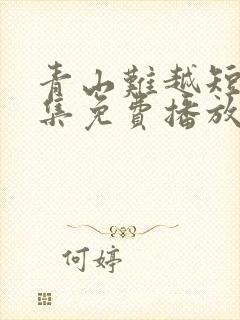 青山難越短
集免費播放
何婷